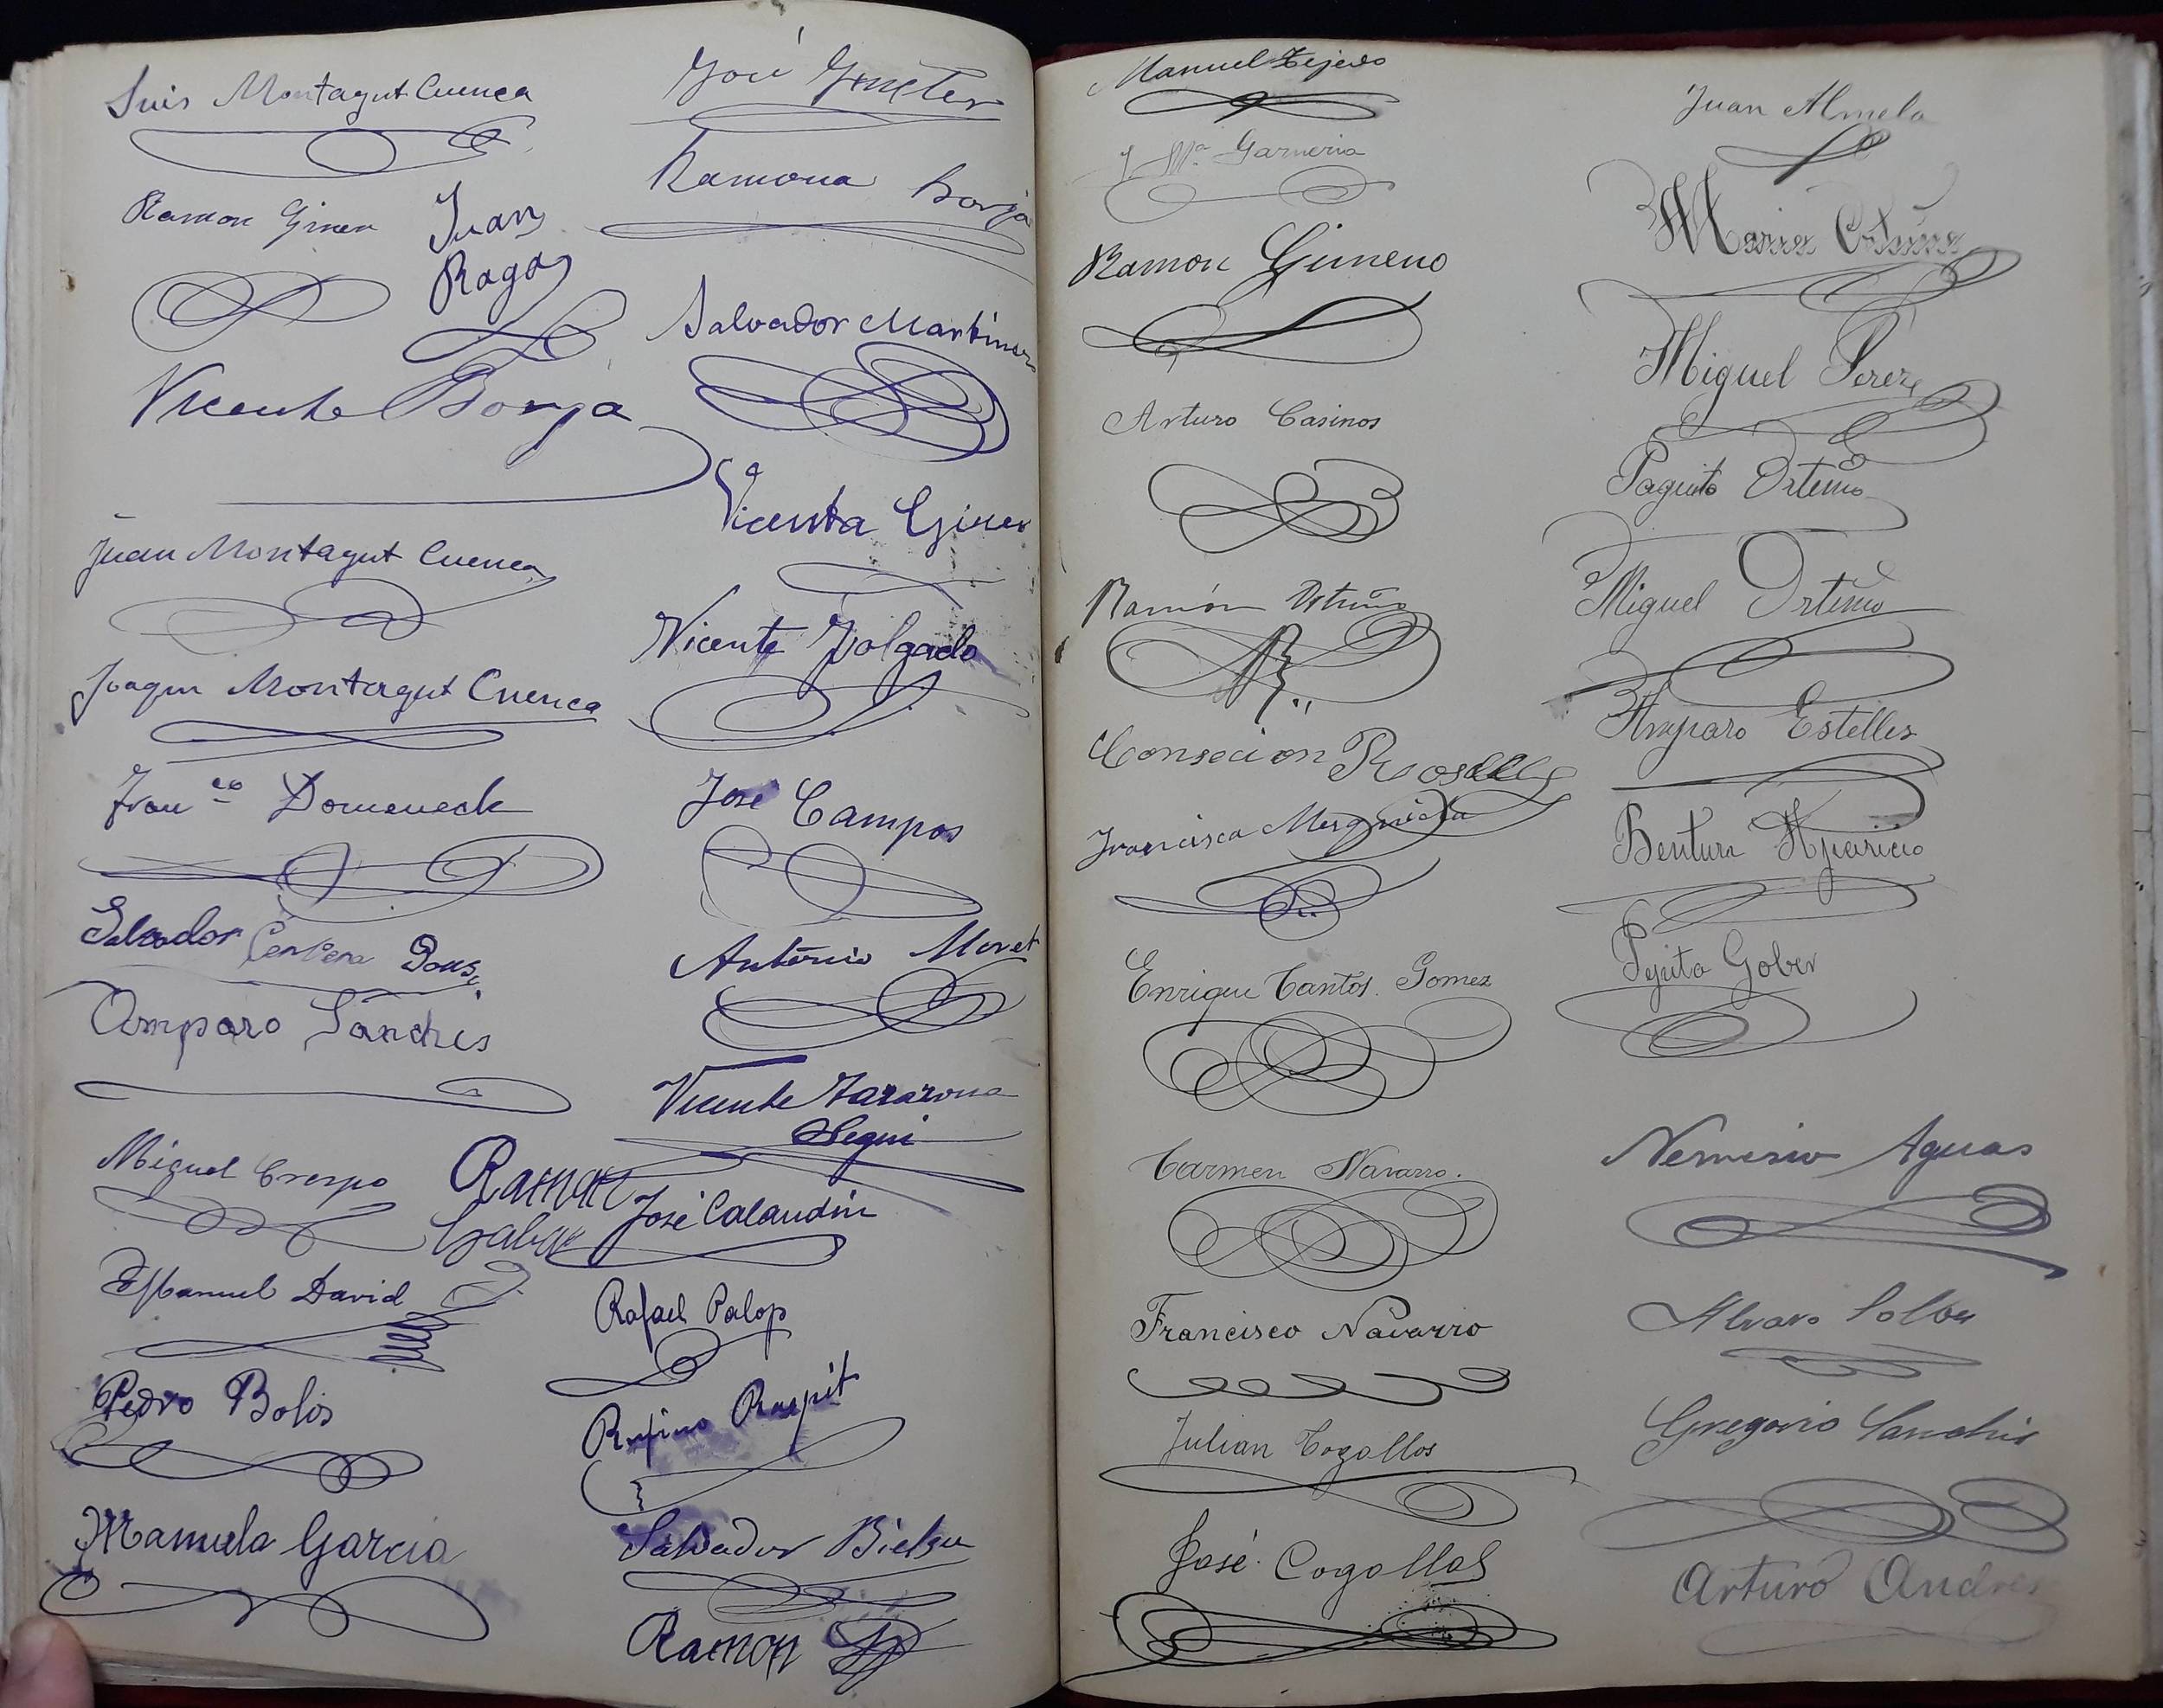 Luis Montagut Cuenca
Ramon Giner
Juan
Raga
Vicente Borja
Juan Montagut Cuenca
Joaquin Montagut Cuenca
Franco Domenech
Salvador Cervera Pons
Amparo Sanchis
Miguel Crespo
Ramon
Manuel David
Pedro Bolis
Manuela Garcia
José
Ramona Borja
Salvador Martinez
Vicenta Giner
Vicente Folgado
José Campos
Antonio Moret
Vicente Zarazona
Segui
José Calandin
Rafael Palop
Rufino
Salvador Bielsa
Ramon
Manuel Tejedo
J Mª Garneria
Ramon Gimeno
Arturo Casinos
Ramón Ortuño
Consecion Rosell
Francisca
Enrique Cantos Gomez
Carmen Navarro.
Francisco Navarro
Julian Cogollos
José Cogollos
Juan Almela
Maria Ortuño
Miguel Perez
Paquito Ortuño
Miguel Ortuño
Amparo Estelles
Bentura Aparicio
Pepita Gober
Nemesio Aguas
Alvaro
Gregorio Sanchis
Arturo Andres